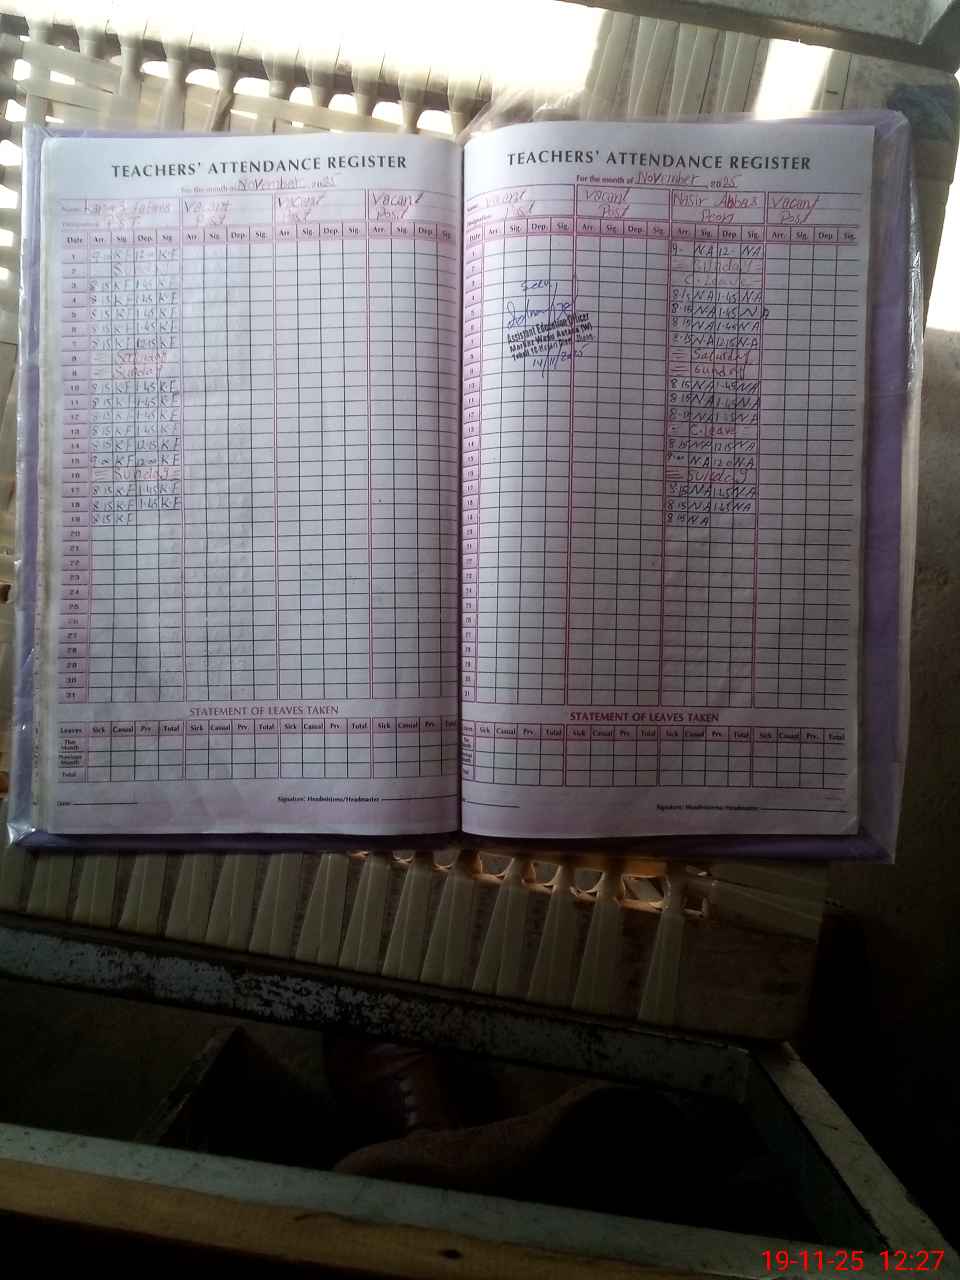 TEACHERS' ATTENDANCE REGISTER
For the month of November 2025
Name: Fatima Vacant Vacant Vacant
Designation: P.S.T Post Post Post
Date Arr. Sig. Dep. Sig. Arr. Sig. Dep. Sig. Arr. Sig. Dep. Sig. Arr. Sig. Dep. Sig.
1 9-00 K F 12-00 K F
2 Sunday
3 8 15 K F 1-45 K F
4 8 15 K F 1-45 K F
5 8 15 K F 1-45 K F
6 8 15 K F 1-45 K F
7 8 15 K F 12 15 K F
8 = Saturday
9 = Sunday
10 8 15 K F 1-45 K F
11 8 15 K F 1-45 K F
12 8 15 K F 1-45 K F
13 8 15 K F 1-45 K F
14 8 15 K F 12 15 K F
15 9-00 K F 12-00 K F
16 = Sunday =
17 8 15 K F 1-45 K F
18 8 15 K F 1-45 K F
19 8 15 K F
20
21
22
23
24
25
26
27
28
29
30
31
STATEMENT OF LEAVES TAKEN
Leaves Sick Casual Prv. Total Sick Casual Prv. Total Sick Casual Prv. Total Sick Casual Prv. Total
This Month
Previous Month
Total
Date Signature: Headmistress/Headmaster
TEACHERS' ATTENDANCE REGISTER
For the month of November 2025
Name: Vacant Vacant Nasir Abbas Vacant
Post Post Peon Post
Date Arr. Sig. Dep. Sig. Arr. Sig. Dep. Sig. Arr. Sig. Dep. Sig. Arr. Sig. Dep. Sig.
1 9- N A 12- N A
2 = Sunday =
3 C. Leave -
4 8 15 N A 1-45 N A
5 8-15 N A 1-45 N A
6 8 15 N A 1-45 N A
7 8-15 N A 12 15 N A
8 = Saturday
9 = Sunday
10 8 15 N A 1-45 N A
11 8 15 N A 1-45 N A
12 8-15 N A 1-45 N A
13 = C. leave =
14 8 15 N A 12 15 N A
15 9-00 N A 12-0 N A
16 = Sunday
17 8-15 N A 1-45 N A
18 8 15 N A 1-45 N A
19 8 15 N A
20
21
22
23
24
25
26
27
28
29
30
31
Seen
Assistant Education Officer
Markaz
14/11/2025
STATEMENT OF LEAVES TAKEN
Leaves Sick Casual Prv. Total Sick Casual Prv. Total Sick Casual Prv. Total Sick Casual Prv. Total
This Month
Previous Month
Total
Signature: Headmistress/Headmaster
19-11-25 12:27